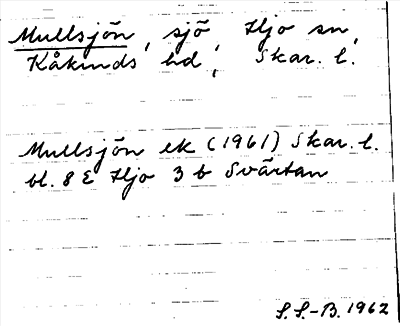 Mullsjön, sjö, Hjo sn,
Kåkinds hd, Skar. l.
Mullsjön ek (1961) Skar. l.
bl. 8 E Hjo 3 b Svärtan
S.S.-B. 1962